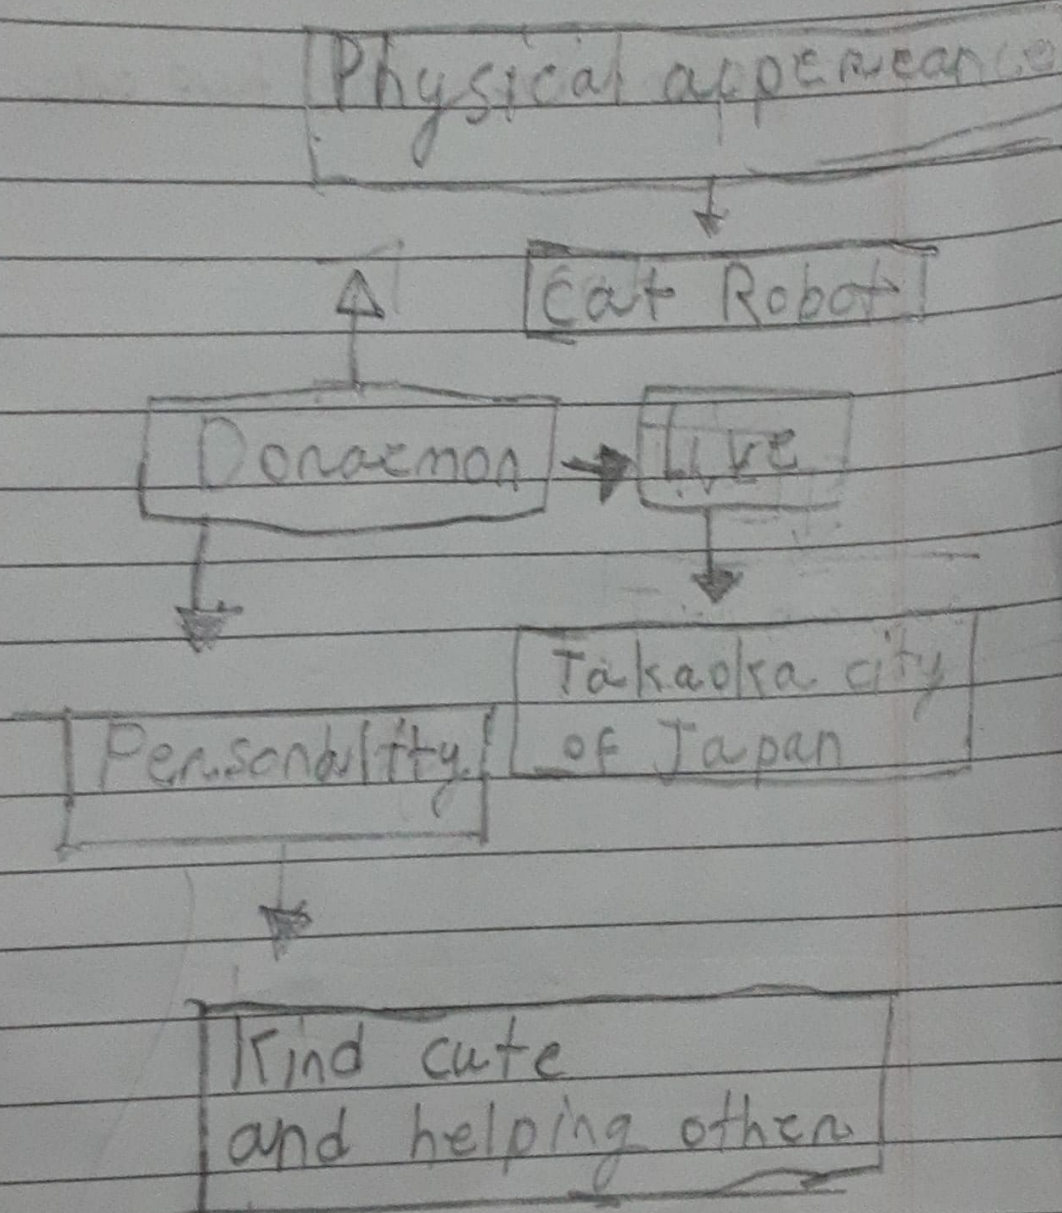 Physical appereance
Cat Robot
Donaemon
Live
Takaoka city
of Japan
Personality
Kind cute
and helping other